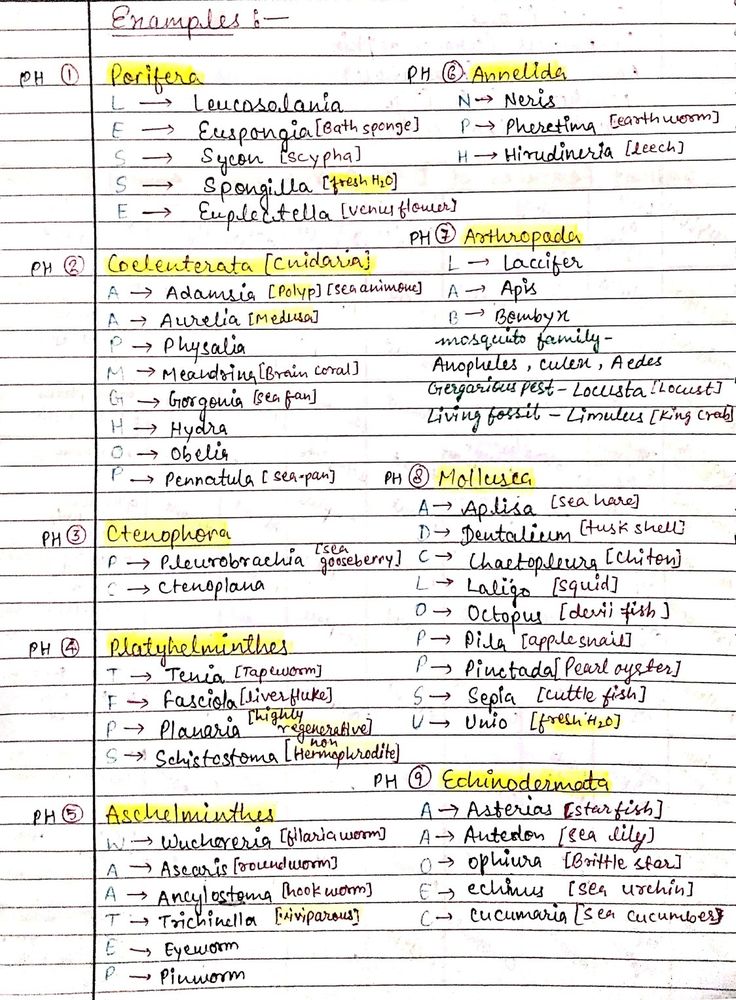 Examples :-
PH ① Porifera
L → Leucosolania
E → Euspongia [Bath sponge]
S → Sycon [scypha]
S → Spongilla [fresh H2O]
E → Euplectella [venus flower]
PH ② Coelenterata [Cnidaria]
A → Adamsia [Polyp] [sea animone]
A → Aurelia [Medusa]
P → Physalia
M → Meandring [Brain coral]
G → Gorgonia [sea fan]
H → Hydra
O → Obelia
P → Pennatula [sea-pan]
PH ③ Ctenophora
P → Pleurobrachia [sea gooseberry]
C → Ctenoplana
PH ④ Platyhelminthes
T → Tenia [Tapeworm]
F → Fasciola [liverfluke]
P → Planaria [highly regenerative]
S → Schistostoma [non Hermophrodite]
PH ⑤ Aschelminthes
W → Wuchereria [filaria worm]
A → Ascaris [roundworm]
A → Ancylostoma [hook worm]
T → Trichinella [viviparous]
E → Eyeworm
P → Pinworm
PH ⑥ Annelida
N → Neris
P → Pheretima [earthworm]
H → Hirudineria [leech]
PH ⑦ Arthropada
L → Laccifer
A → Apis
B → Bombyx
mosquito family-
Anopheles, culex, Aedes
Gergarious pest - Locusta [Locust]
Living fossil - Limulus [King Crab]
PH ⑧ Mollusca
A → Aplisa [sea hare]
D → Dentalium [tusk shell]
C → Chaetopleura [Chiton]
L → Laligo [squid]
O → Octopus [devil fish]
P → Pila [apple snail]
P → Pinctada [Pearl oyster]
S → Sepia [cuttle fish]
U → Unio [fresh H2O]
PH ⑨ Echinodermata
A → Asterias [star fish]
A → Antedon [sea lily]
O → ophiura [Brittle star]
E → echinus [sea urchin]
C → cucumaria [sea cucumber]